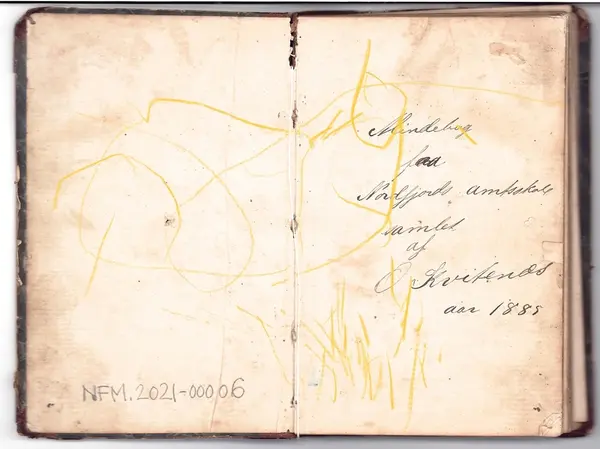 NFM.2021-00006
Mindebog
fra
Nordfjords amtsskole
samlet
af
O Kvitenæs
aar 1885